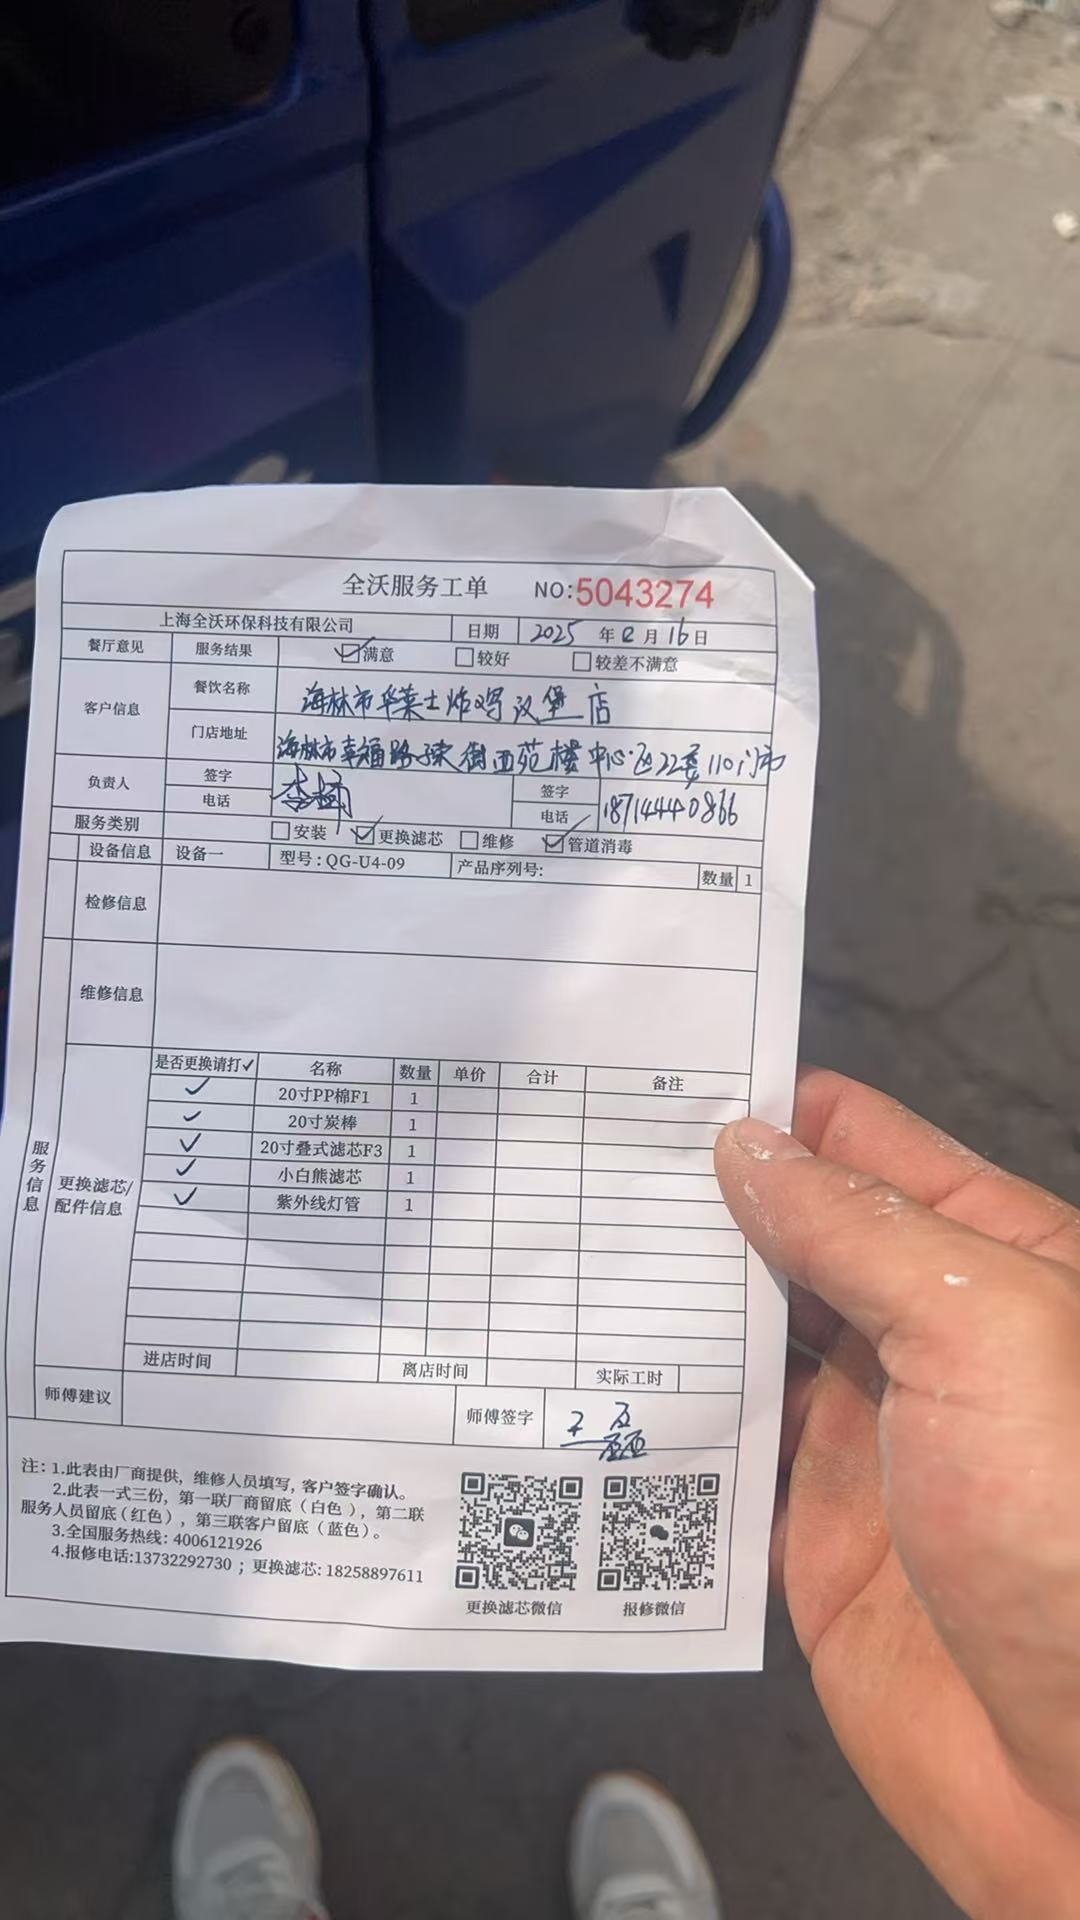 全沃服务工单 NO:5043274
上海全沃环保科技有限公司 日期 2025 年 月 16 日
餐厅意见 服务结果 ☑满意 □较好 □较差不满意
客户信息 餐饮名称 海林市华莱士炸鸡汉堡店
门店地址 海林市幸福路 街西苑楼中心区22委110门市
负责人 签字 签字
电话 电话 18714440866
服务类别 □安装 ☑更换滤芯 □维修 ☑管道消毒
设备信息 设备一 型号:QG-U4-09 产品序列号: 数量 1
检修信息
维修信息
服务信息
更换滤芯/配件信息
是否更换请打✓ 名称 数量 单价 合计 备注
✓ 20寸PP棉F1 1
✓ 20寸炭棒 1
✓ 20寸叠式滤芯F3 1
✓ 小白熊滤芯 1
✓ 紫外线灯管 1
进店时间 离店时间 实际工时
师傅建议 师傅签字 王磊
注: 1.此表由厂商提供, 维修人员填写, 客户签字确认。
2.此表一式三份, 第一联厂商留底(白色), 第二联
服务人员留底(红色), 第三联客户留底(蓝色)。
3.全国服务热线: 4006121926
4.报修电话:13732292730 ; 更换滤芯: 18258897611
更换滤芯微信 报修微信